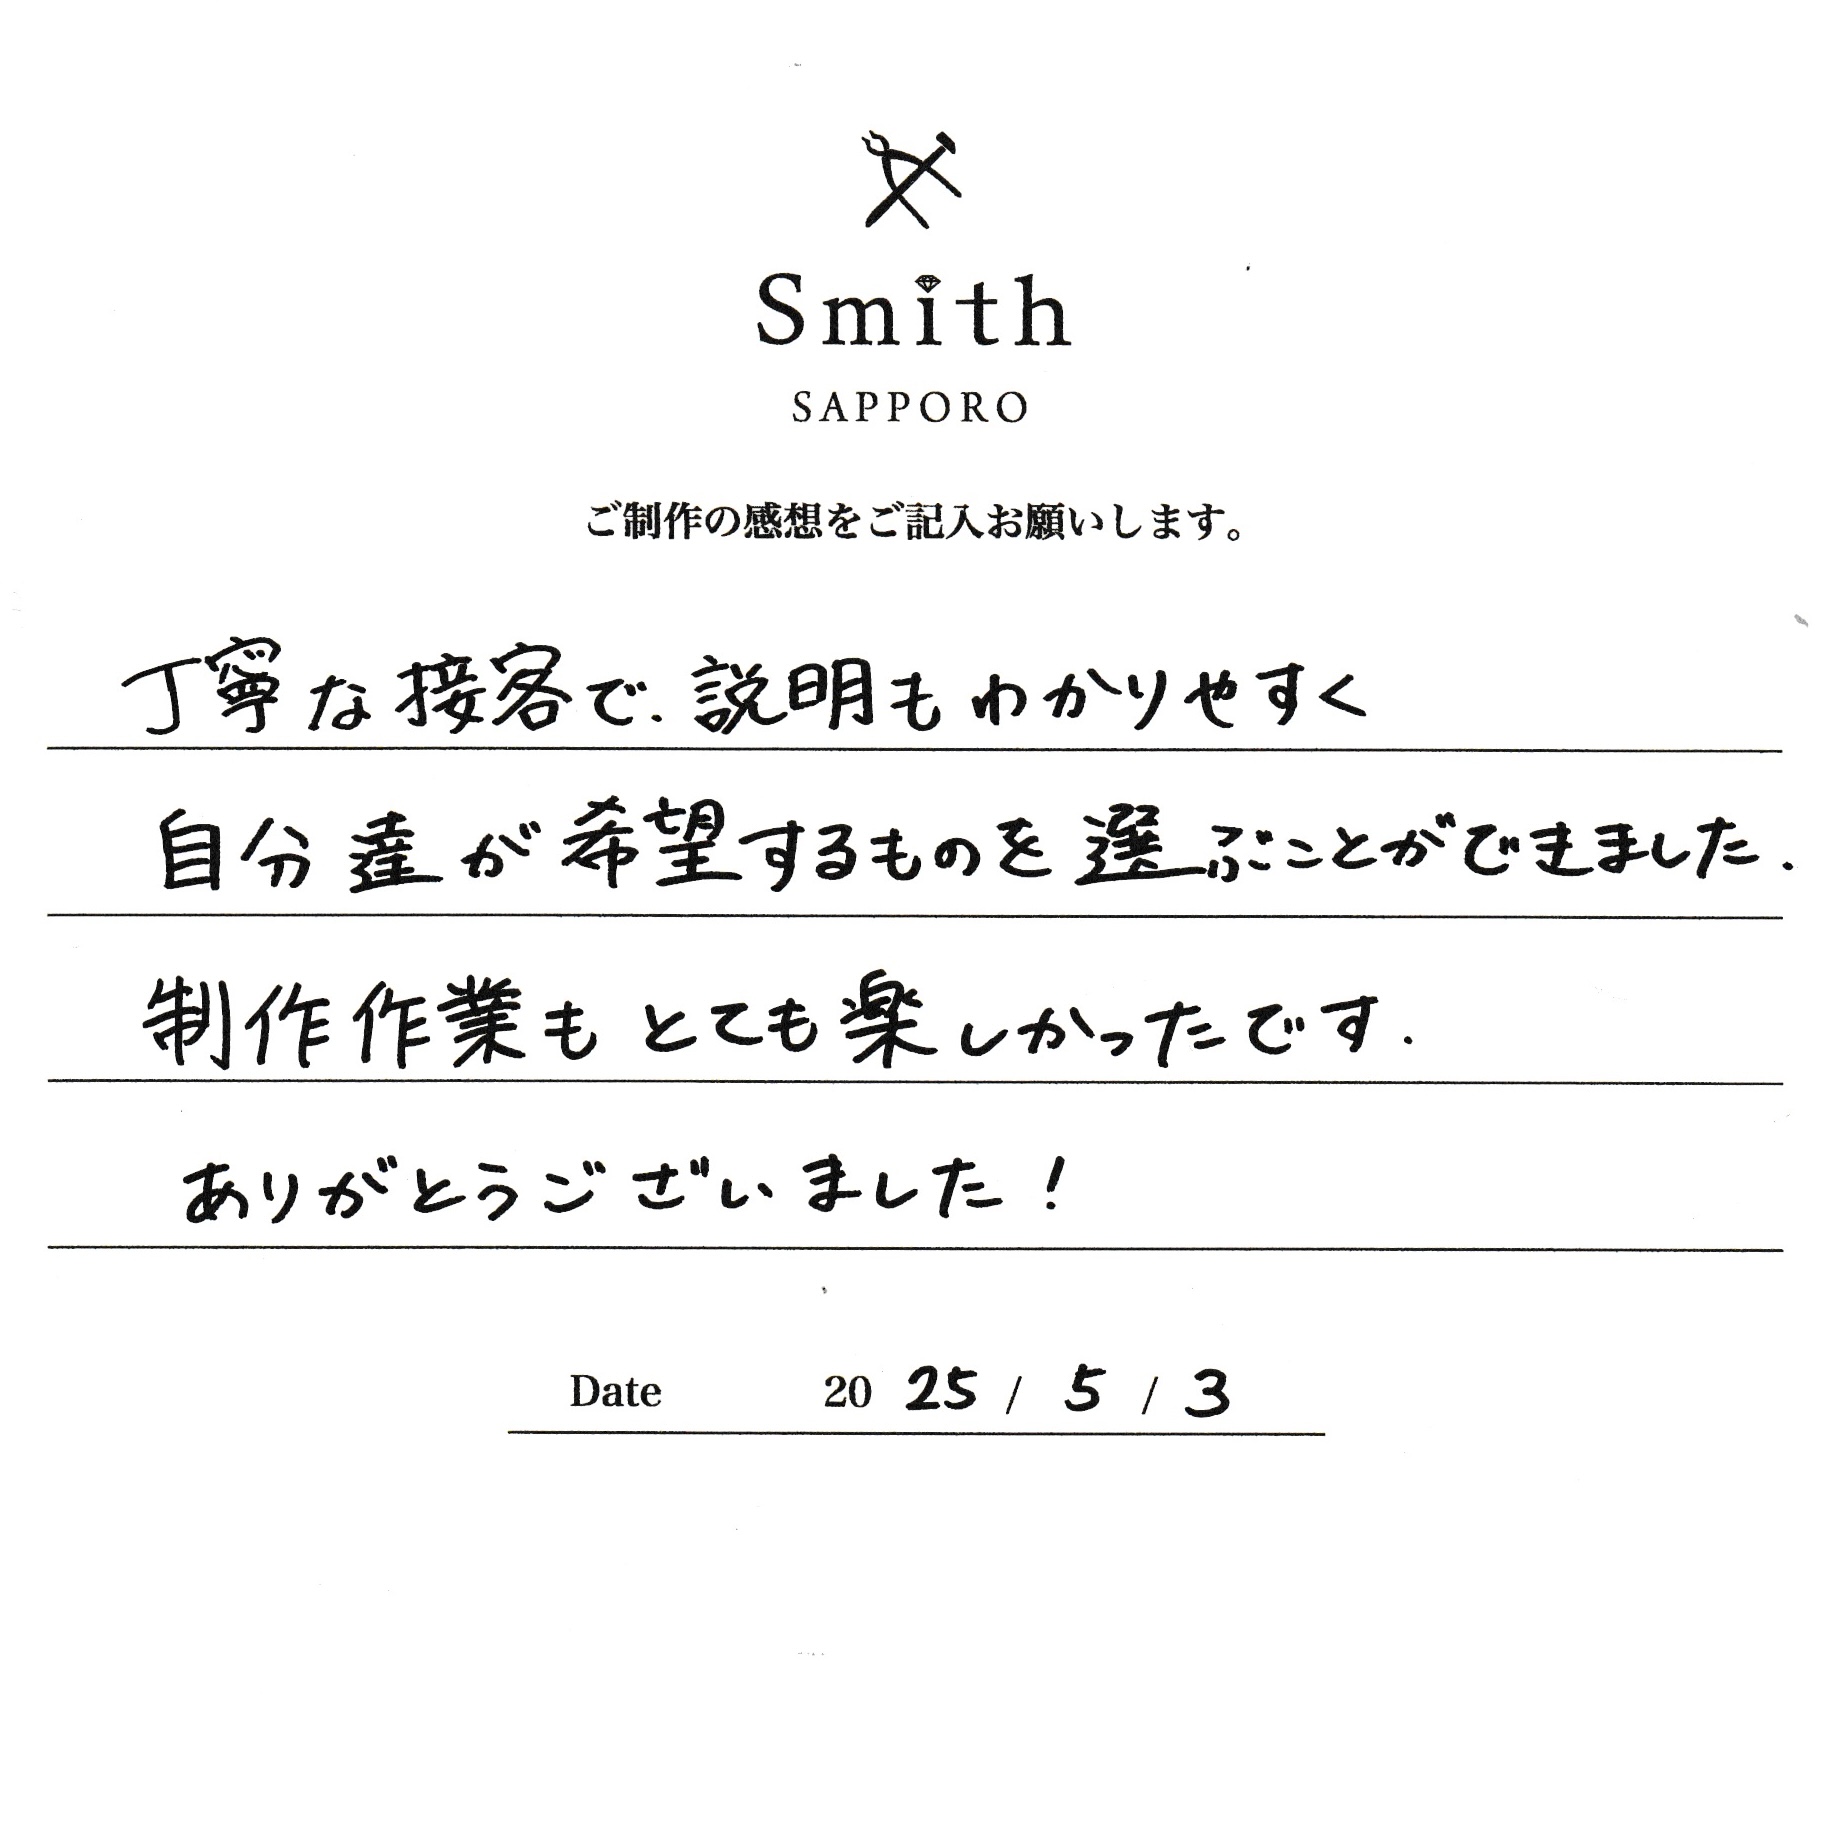 Smith
SAPPORO
ご制作の感想をご記入お願いします。
丁寧な接客で.説明もわかりやすく
自分達が希望するものを選ぶことができました.
制作作業もとても楽しかったです.
ありがとうございました!
Date 2025 / 5 / 3